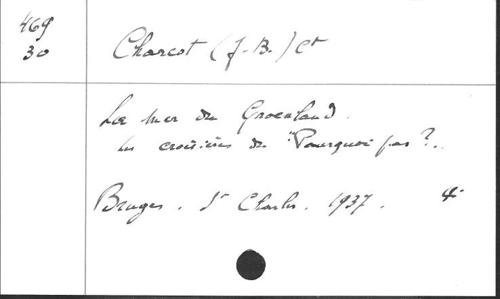 469
30
Charcot (J-B.) Ct
La mer du Groenland.
les croisières du "Pourquoi pas?".
Bruges. St Charles. 1937. 4°